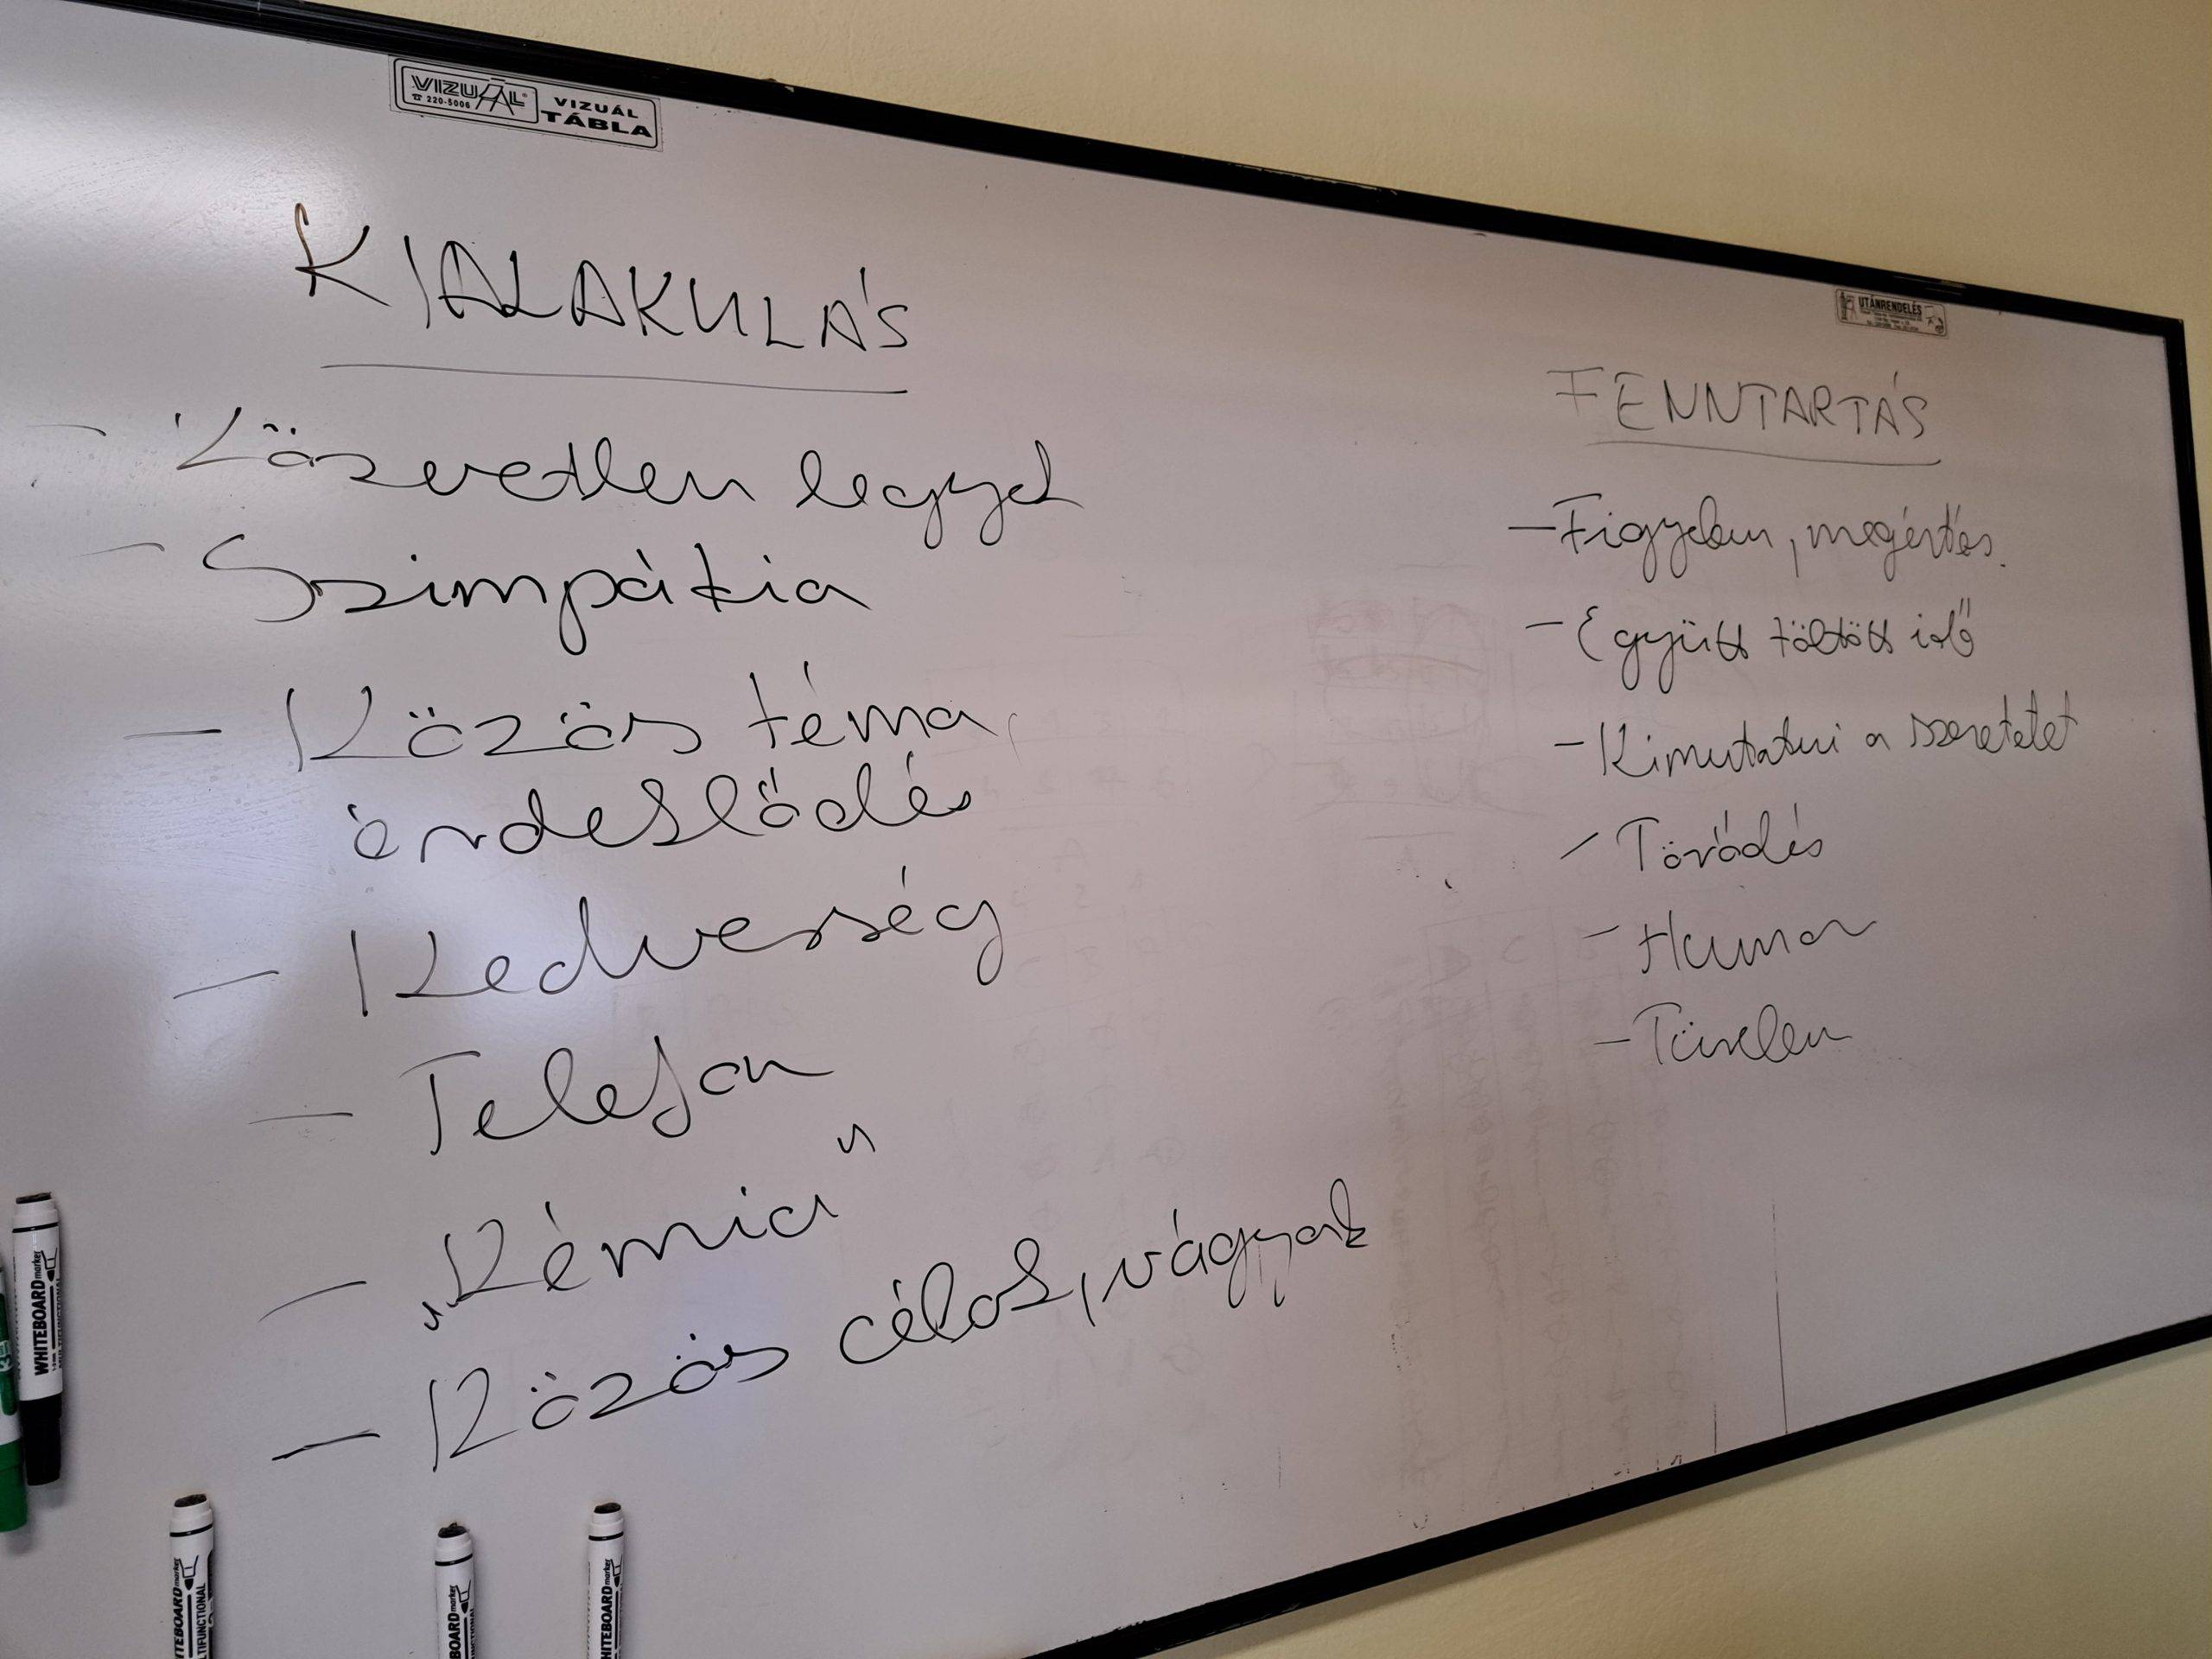 VIZUÁL
220-5006
VIZUÁL
TÁBLA
KIALAKULÁS
- Közvetlen legyek
- Szimpátia
- Közös téma,
érdeklődés
- Kedvesség
- Telefon
- „Kémia"
- Közös célok, vágyak
UTÁNRENDELÉS
FENNTARTÁS
- Figyelem, megértés.
- Együtt töltött idő
- Kimutatni a szeretetet
- Törődés
- Humor
- Türelem
WHITEBOARD marker
MULTIFUNCTIONAL
WHITEBOARD marker
MULTIFUNCTIONAL
BOARD marker
WHITEBOARD marker